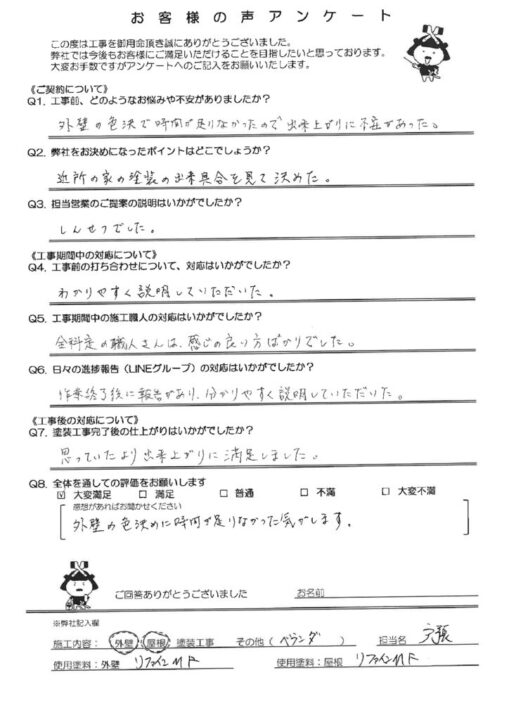 お客様の声アンケート
この度は工事を御用命頂き誠にありがとうございました。
弊社では今後もお客様にご満足いただけることを目指したいと思っております。
大変お手数ですがアンケートへのご記入をお願いいたします。
《ご契約について》
Q1. 工事前、どのようなお悩みや不安がありましたか?
外壁の色決で時間が足りなかったので出来上がりに不安があった。
Q2. 弊社をお決めになったポイントはどこでしょうか?
近所の家の塗装の出来具合を見て決めた。
Q3. 担当営業のご提案の説明はいかがでしたか?
しんせつでした。
《工事期間中の対応について》
Q4. 工事前の打ち合わせについて、対応はいかがでしたか?
わかりやすく説明していただいた。
Q5. 工事期間中の施工職人の対応はいかがでしたか?
全行程の職人さんは、感じの良い方ばかりでした。
Q6. 日々の進捗報告(LINEグループ)の対応はいかがでしたか?
作業終了後に報告があり、分かりやすく説明していただいた。
《工事後の対応について》
Q7. 塗装工事完了後の仕上がりはいかがでしたか?
思っていたより出来上がりに満足しました。
Q8. 全体を通しての評価をお願いします
☑ 大変満足 □ 満足 □ 普通 □ 不満 □ 大変不満
感想があればお聞かせください
外壁の色決めに時間が足りなかった気がします。
ご回答ありがとうございました お名前
※弊社記入欄
施工内容: 外壁 屋根 塗装工事 その他( ベランダ ) 担当名 戸張
使用塗料:外壁 リファインMF 使用塗料:屋根 リファインMF